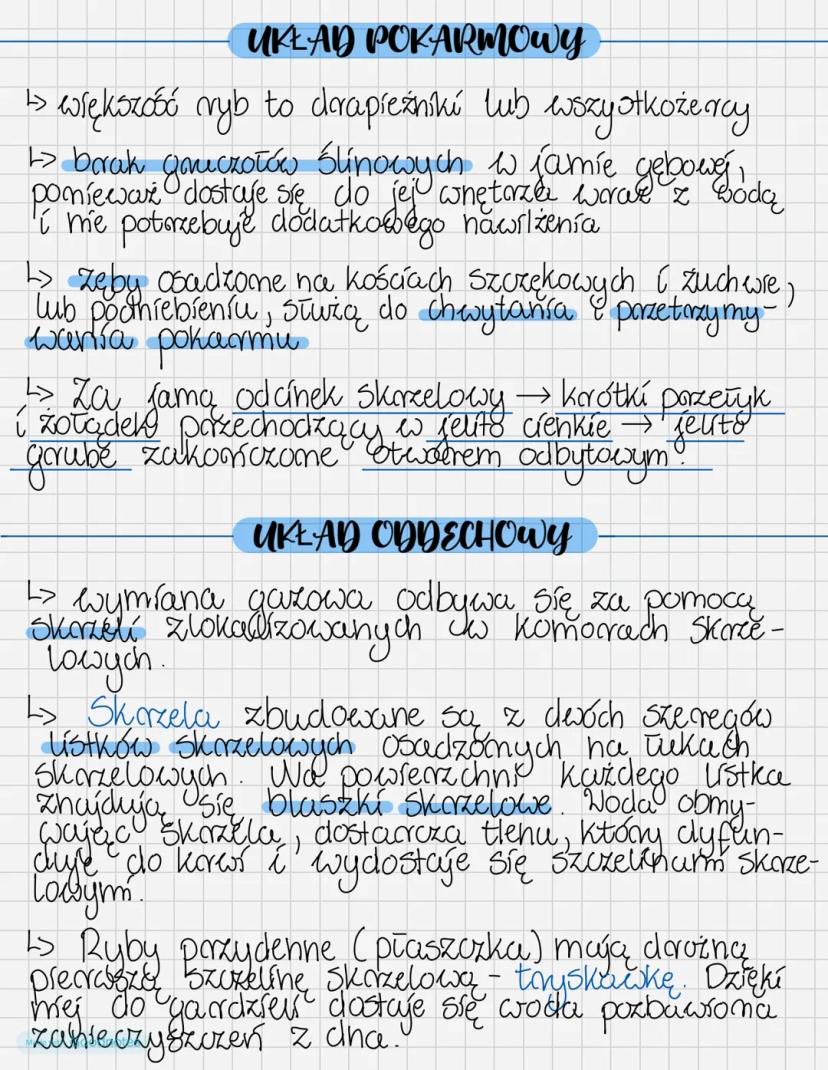 UKŁAD POKARMOWY
↳ większość ryb to drapieżniki lub wszystkożercy
↳ brak gruczołów ślinowych w jamie gębowej,
ponieważ dostaje się do jej wnętrza wraz z wodą
i nie potrzebuje dodatkowego nawilżenia
↳ zęby osadzone na kościach szczękowych i żuchwie,
lub podniebieniu, służą do chwytania i przetrzymy-
wania pokarmu
↳ Za jamą odcinek skrzelowy → krótki przełyk
i żołądek przechodzący w jelito cienkie → jelito
grube zakończone otworem odbytowym.
UKŁAD ODDECHOWY
↳ wymiana gazowa odbywa się za pomocą
skrzeli zlokalizowanych w komorach skrze-
lowych.
↳ Skrzela zbudowane są z dwóch szeregów
listków skrzelowych osadzonych na łukach
skrzelowych. Na powierzchni każdego listka
znajdują się blaszki skrzelowe. Woda obmy-
wając skrzela, dostarcza tlenu, który dyfun-
duje do krwi i wydostaje się szczelinami skrze-
lowymi.
↳ Ryby przydenne (płaszczka) mają drożną
pierwszą szczelinę skrzelową - tryskawkę. Dzięki
niej do gardzieli dostaje się woda pozbawiona
zanieczyszczeń z dna.